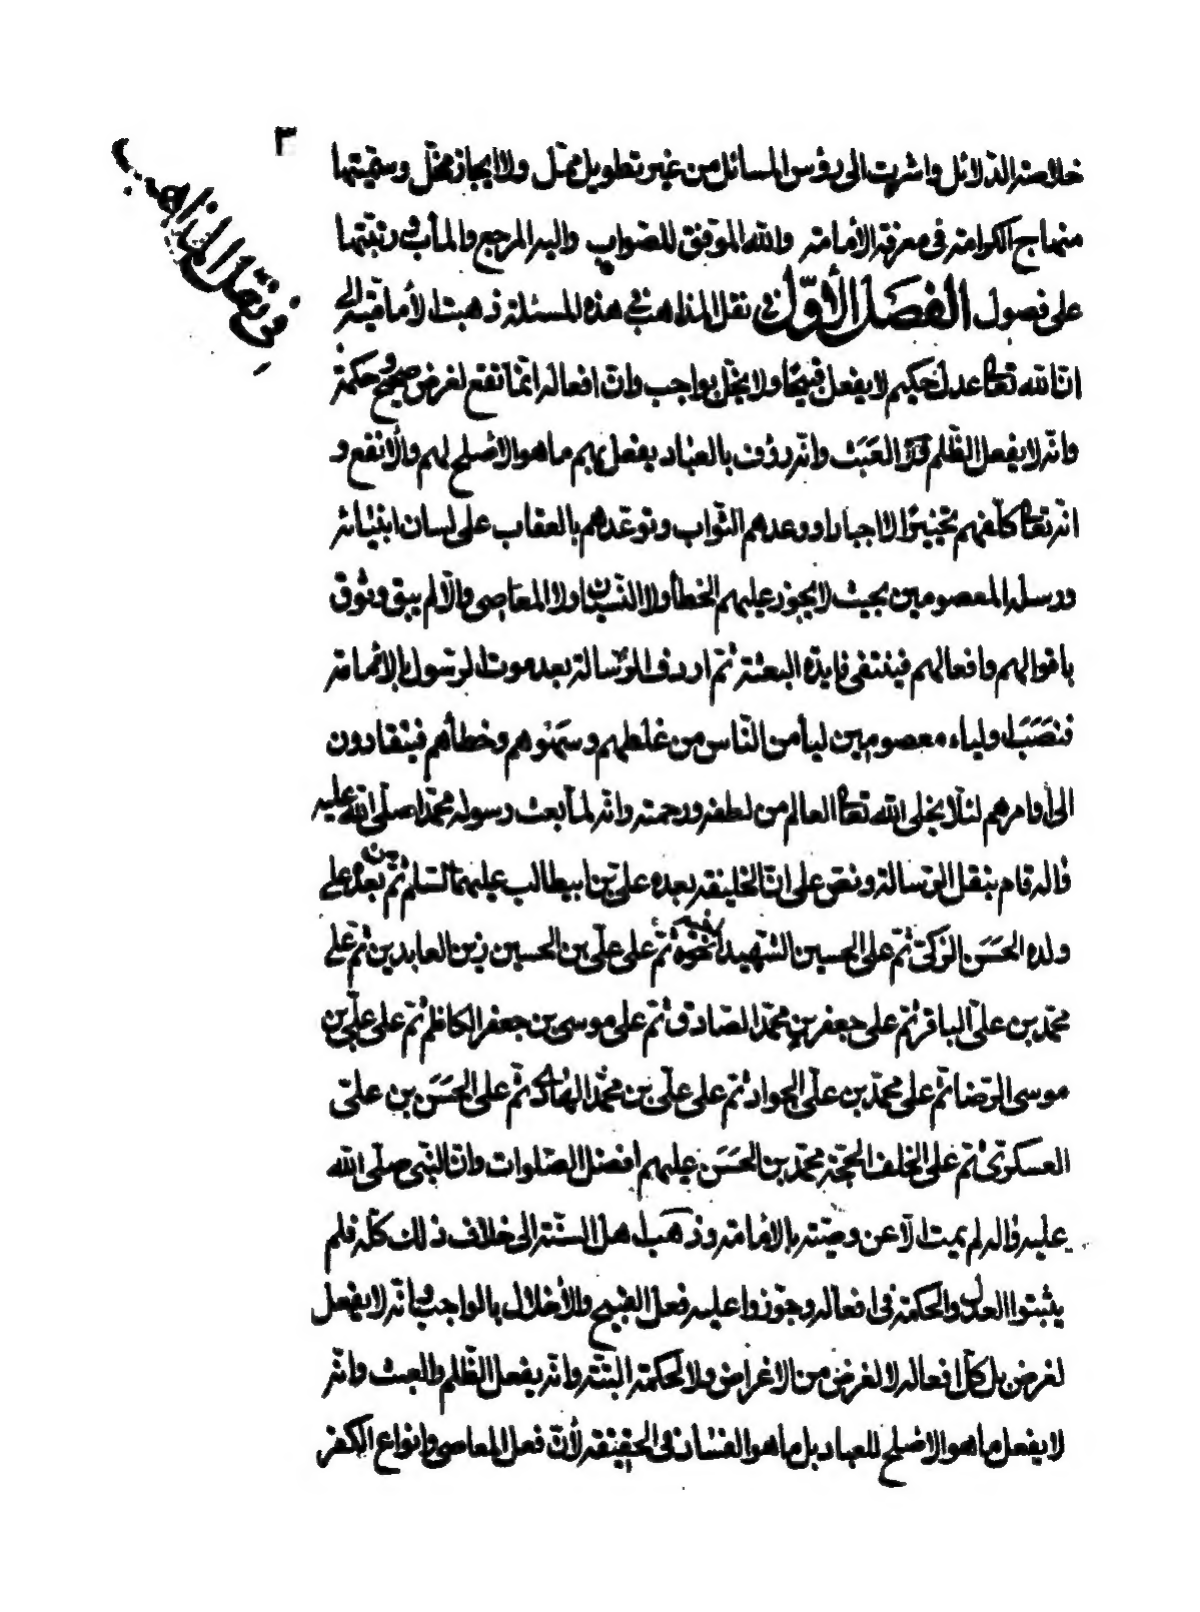 ٣
في نقل المذاهب
خلاصة الدّلائل واشرت الى رؤس المسائل من غير تطويل مملّ ولا ايجاز مخلّ وسمّيتها
منهاج الكرامة فى معرفة الأمامة والله الموفق للصّواب واليه المرجع والمأب ورتبتها
على فصول الفصل الأوّل في نقل المذاهب في هذه المسئلة ذهبت الأماميّة الى
انّ الله تعالى عدل حكيم لا يفعل قبيحًا ولا يخلّ بواجب وانّ افعاله انّما تقع لغرض صحيح وحكمة
وانّه لا يفعل الظّلم ولا العَبَث وانّه رؤف بالعباد يفعل بهم ما هو الأصلح لهم والأنفع و
انّه تعالى كلّفهم تخييرًا لا اجبارا ووعدهم الثّواب وتوعّدهم بالعقاب على لسان انبيائه
ورسله المعصومين بحيث لا يجوز عليهم الخطأ ولا النّسيان ولا المعاصى والّا لم يبق وثوق
باقوالهم وافعالهم فينتفى فايدة البعثة ثمّ اردف الرّسالة بعد موت الرّسول بالأمامة
فنَصَبَ اولياء معصومين ليأمن النّاس من غلطهم وسَهْوهم وخطأهم فينقادون
الى اوامرهم لئلّا يخلى الله تعالى العالم من لطفه ورحمته وانّه لمّا بعث رسوله محمّدا صلّى الله عليه
واله قام بنقل الرّسالة ونصّ على انّ الخليفة بعده علىّ بن ابيطالب عليهما السّلم ثمّ من بعده على
ولده الحَسَن الزكىّ ثمّ على الحسين الشّهيد اخيه ثمّ على علىّ بن الحسين زين العابدين ثمّ على
محمّد بن علىّ الباقر ثمّ على جعفر بن محمّد الصّادق ثمّ على موسى بن جعفر الكاظم ثمّ على علىّ بن
موسى الرّضا ثمّ على محمّد بن علىّ الجواد ثمّ على علىّ بن محمّد الهادى ثمّ على الحَسَن بن علىّ
العسكرىّ ثمّ على الخلف الحجّة محمّد بن الحَسَن عليهم افضل الصّلوات وانّ النّبى صلّى الله
عليه واله لم يمت الّا عن وصيّته بالأمامة وذهب اهل السنّة الى خلاف ذلك كلّه فلم
يثبتوا العدل والحكمة فى افعاله وجوّزوا عليه فعل القبيح والأخلال بالواجب وانّه لا يفعل
لغرض بل كلّ افعاله لا لغرض من الاغراض ولا لحكمة البتّة وانّه يفعل الظّلم والعبث وانّه
لا يفعل ما هو الاصلح للعباد بل ما هو الفساد فى الحقيقة لأنّ فعل المعاصى وانواع الكفر